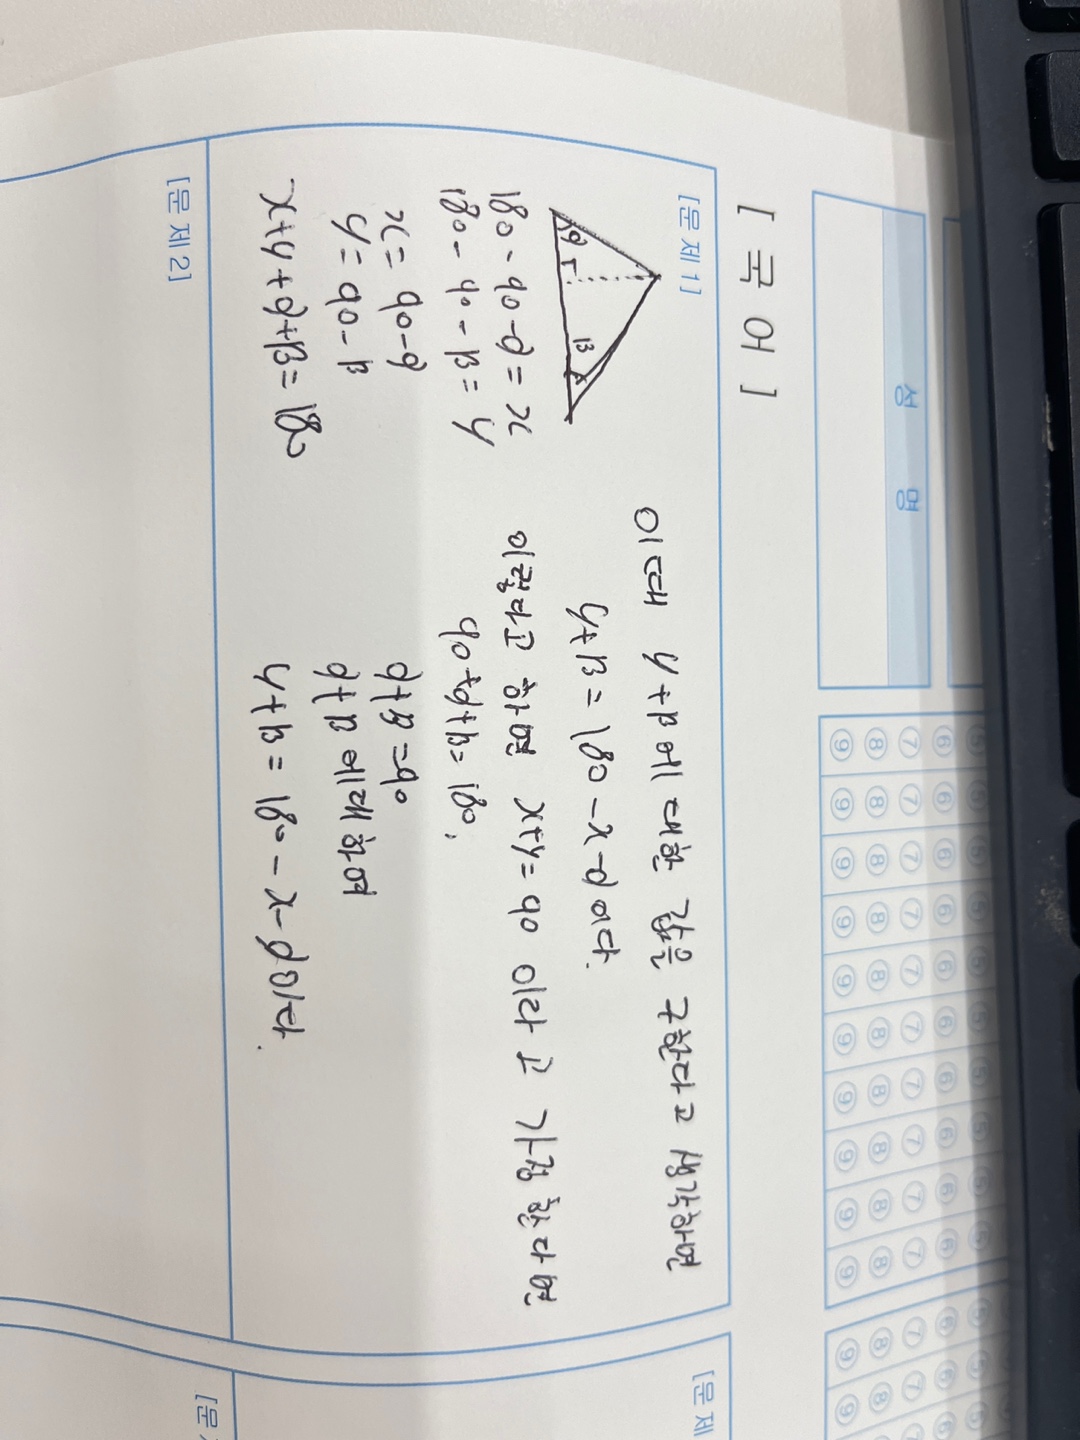 ⑤ ⑤ ⑤ ⑤ ⑤ ⑤ ⑤ ⑤ ⑤ ⑤ ⑤ ⑤ ⑤
⑥ ⑥ ⑥ ⑥ ⑥ ⑥ ⑥ ⑥ ⑥ ⑥ ⑥ ⑥ ⑥
⑦ ⑦ ⑦ ⑦ ⑦ ⑦ ⑦ ⑦ ⑦ ⑦ ⑦ ⑦ ⑦
성 명
⑧ ⑧ ⑧ ⑧ ⑧ ⑧ ⑧ ⑧ ⑧ ⑧ ⑧ ⑧
⑨ ⑨ ⑨ ⑨ ⑨ ⑨ ⑨ ⑨ ⑨ ⑨ ⑨ ⑨
[ 국 어 ]
[문 제 1]
α β
180 - 90 - α = x
180 - 90 - β = y
x = 90 - α
y = 90 - β
x+y+α+β = 180
이때 y+β에 대한 값을 구한다고 생각하면
y+β = 180 - x - α이다.
이렇다고 하면 x+y = 90 이라고 가정한다면
90+α+β = 180,
α+β = 90
α+β에 대하여
y+β = 180 - x - α이다.
[문 제 2]
[문 제